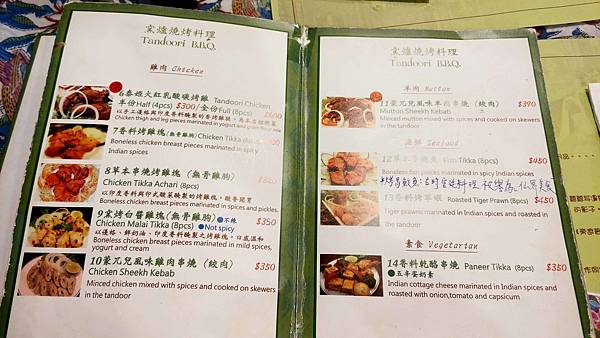 窯爐燒烤料理
Tandoori B.B.Q.
雞肉 Chicken
6泰姬火紅乳酸碳烤雞 Tandoori Chicken
半份Half (4pcs) $300/全份Full (8pcs) $600
以手工優格與印度香料醃製的香烤雞腿
Chicken thigh and leg pieces marinated in yogurt and
7香料烤雞塊(無骨雞胸)Chicken Tikka (8pcs)
Boneless chicken breast pieces marinated in spicy
Indian spices
8草本串燒烤雞塊 (無骨雞胸)
Chicken Tikka Achari (8pcs)
Boneless chicken breast pieces marinated in spices and pickles.
9窯烤白醬雞塊(無骨雞胸) ●不辣 $350
Chicken Malai Tikka (8pcs) ●Not spicy
以優格、鮮奶油、印度香料醃製之烤雞塊，口感溫和
Boneless chicken breast pieces marinated in mild spices,
yogurt and cream
10蒙兀兒風味雞肉串燒 (絞肉) $350
Chicken Sheekh Kebab
Minced chicken mixed with spices and cooked on skewers
in the tandoor
窯爐燒烤料理
Tandoori B.B.Q.
羊肉 Mutton
11蒙兀兒風味羊肉串燒 (絞肉) $390
Mutton Sheekh Kebab
Minced mutton mixed with spices and cooked on skewers
in the tandoor
海鮮 Seafood
Tikka (8pcs) $450
Boneless fish pieces marinated in spicy Indian spices
13香料烤草蝦 Roasted Tiger Prawn (8pcs) $450
Tiger prawns marinated in Indian spices and roasted in
the tandoor
素食 Vegetarian
14香料乾酪串燒 Paneer Tikka (8pcs) $350
●五辛蛋奶素
Indian cottage cheese marinated in Indian spices and
roasted with onion,tomato and capsicum